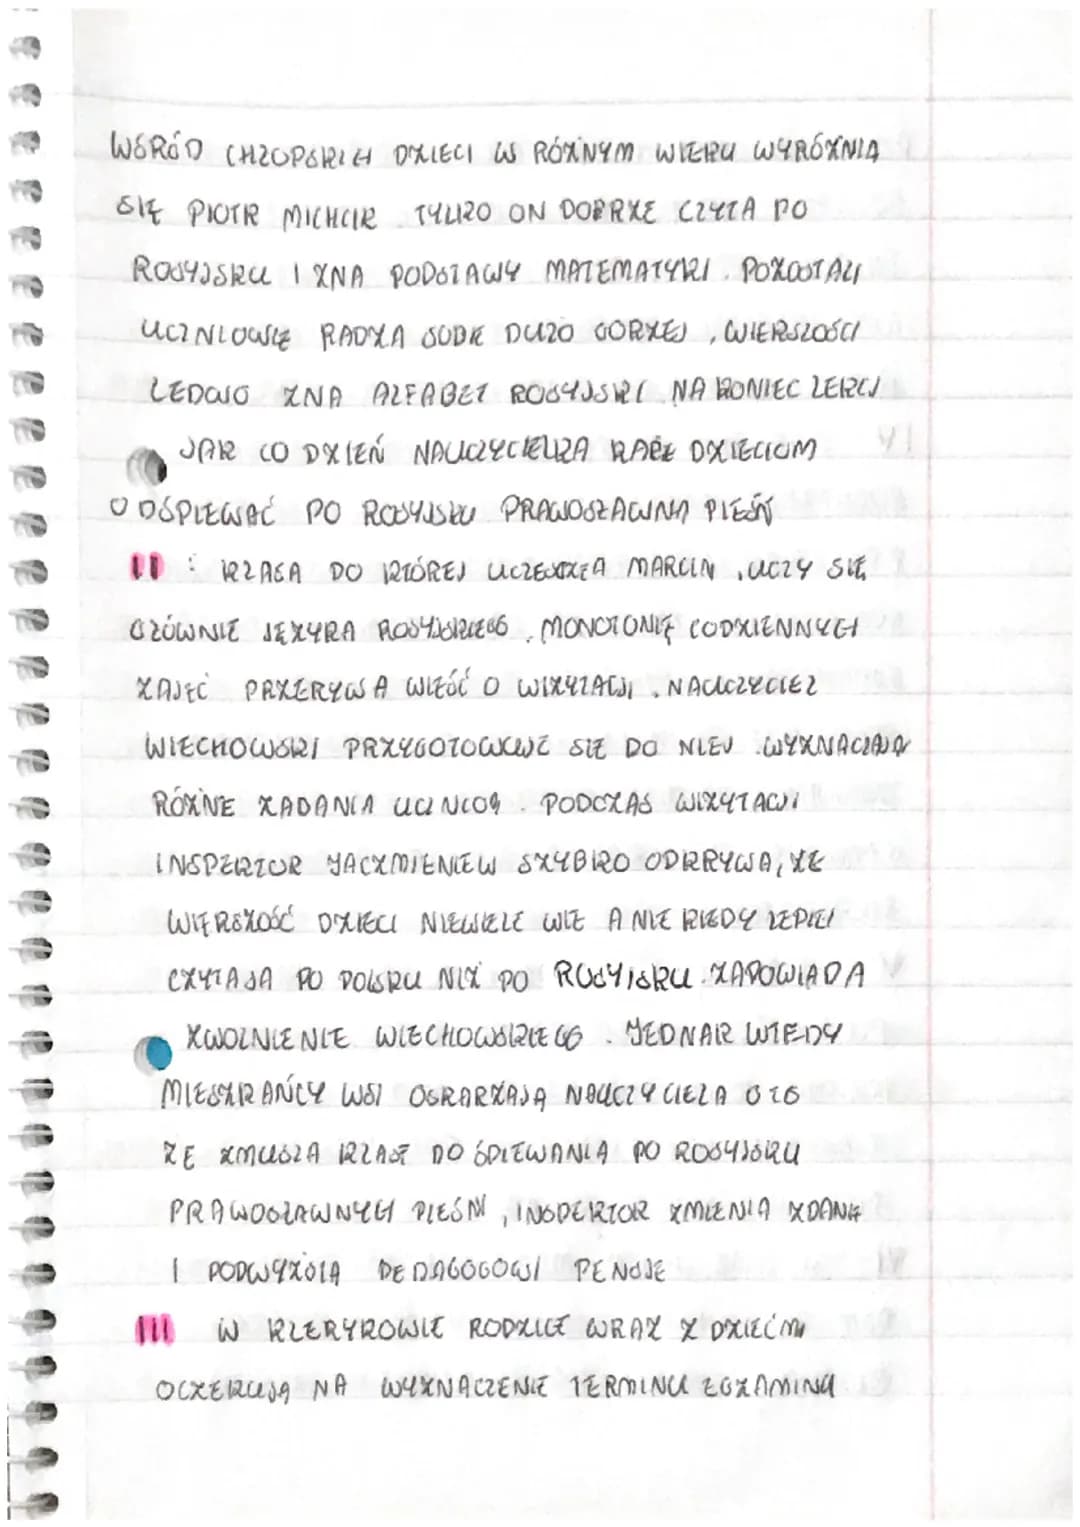 WŚRÓD CHŁOPSKICH DZIECI W RÓŻNYM WIEKU WYRÓŻNIA
SIĘ PIOTR MICHCIK. TYLKO ON DOBRZE CZYTA PO
ROSYJSKU I ZNA PODSTAWY MATEMATYKI. POZOSTALI
UCZNIOWIE RADZĄ SOBIE DUŻO GORZEJ, WIĘKSZOŚCI
LEDWO ZNA ALFABET ROSYJSKI. NA KONIEC LEKCJI
JAK CO DZIEŃ NAUCZYCIELKA KAŻE DZIECIOM
ODŚPIEWAĆ PO ROSYJSKU PRAWOSŁAWNĄ PIEŚŃ
II : KLASA DO KTÓREJ UCZĘSZCZA MARCIN, UCZY SIĘ
GŁÓWNIE JĘZYKA ROSYJSKIEGO, MONOTONIĘ CODZIENNYCH
ZAJĘĆ PRZERYWA WIEŚĆ O WIZYTACJI. NAUCZYCIEL
WIECHOWSKI PRZYGOTOWUJE SIĘ DO NIEJ WYZNACZAJĄ
RÓŻNE ZADANIA UCZNIOM. PODCZAS WIZYTACJI
INSPEKTOR JACZMIENIEW SZYBKO ODKRYWA, ŻE
WIĘKSZOŚĆ DZIECI NIEWIELE WIE A NIEKIEDY LEPIEJ
CZYTAJĄ PO POLSKU NIŻ PO ROSYJSKU. ZAPOWIADA
ZWOLNIENIE WIECHOWSKIEGO. JEDNAK WTEDY
MIESZKAŃCY WSI OSKARŻAJĄ NAUCZYCIELA O TO
ŻE ZMUSZA KLASĘ DO ŚPIEWANIA PO ROSYJSKU
PRAWOSŁAWNYCH PIEŚNI, INSPEKTOR ZMIENIA ZDANIE
I PODWYŻSZA PEDAGOGOWI PENSJE
III W KLERYKOWIE RODZICE WRAZ Z DZIEĆMI
OCZEKUJĄ NA WYZNACZENIE TERMINU EGZAMINU